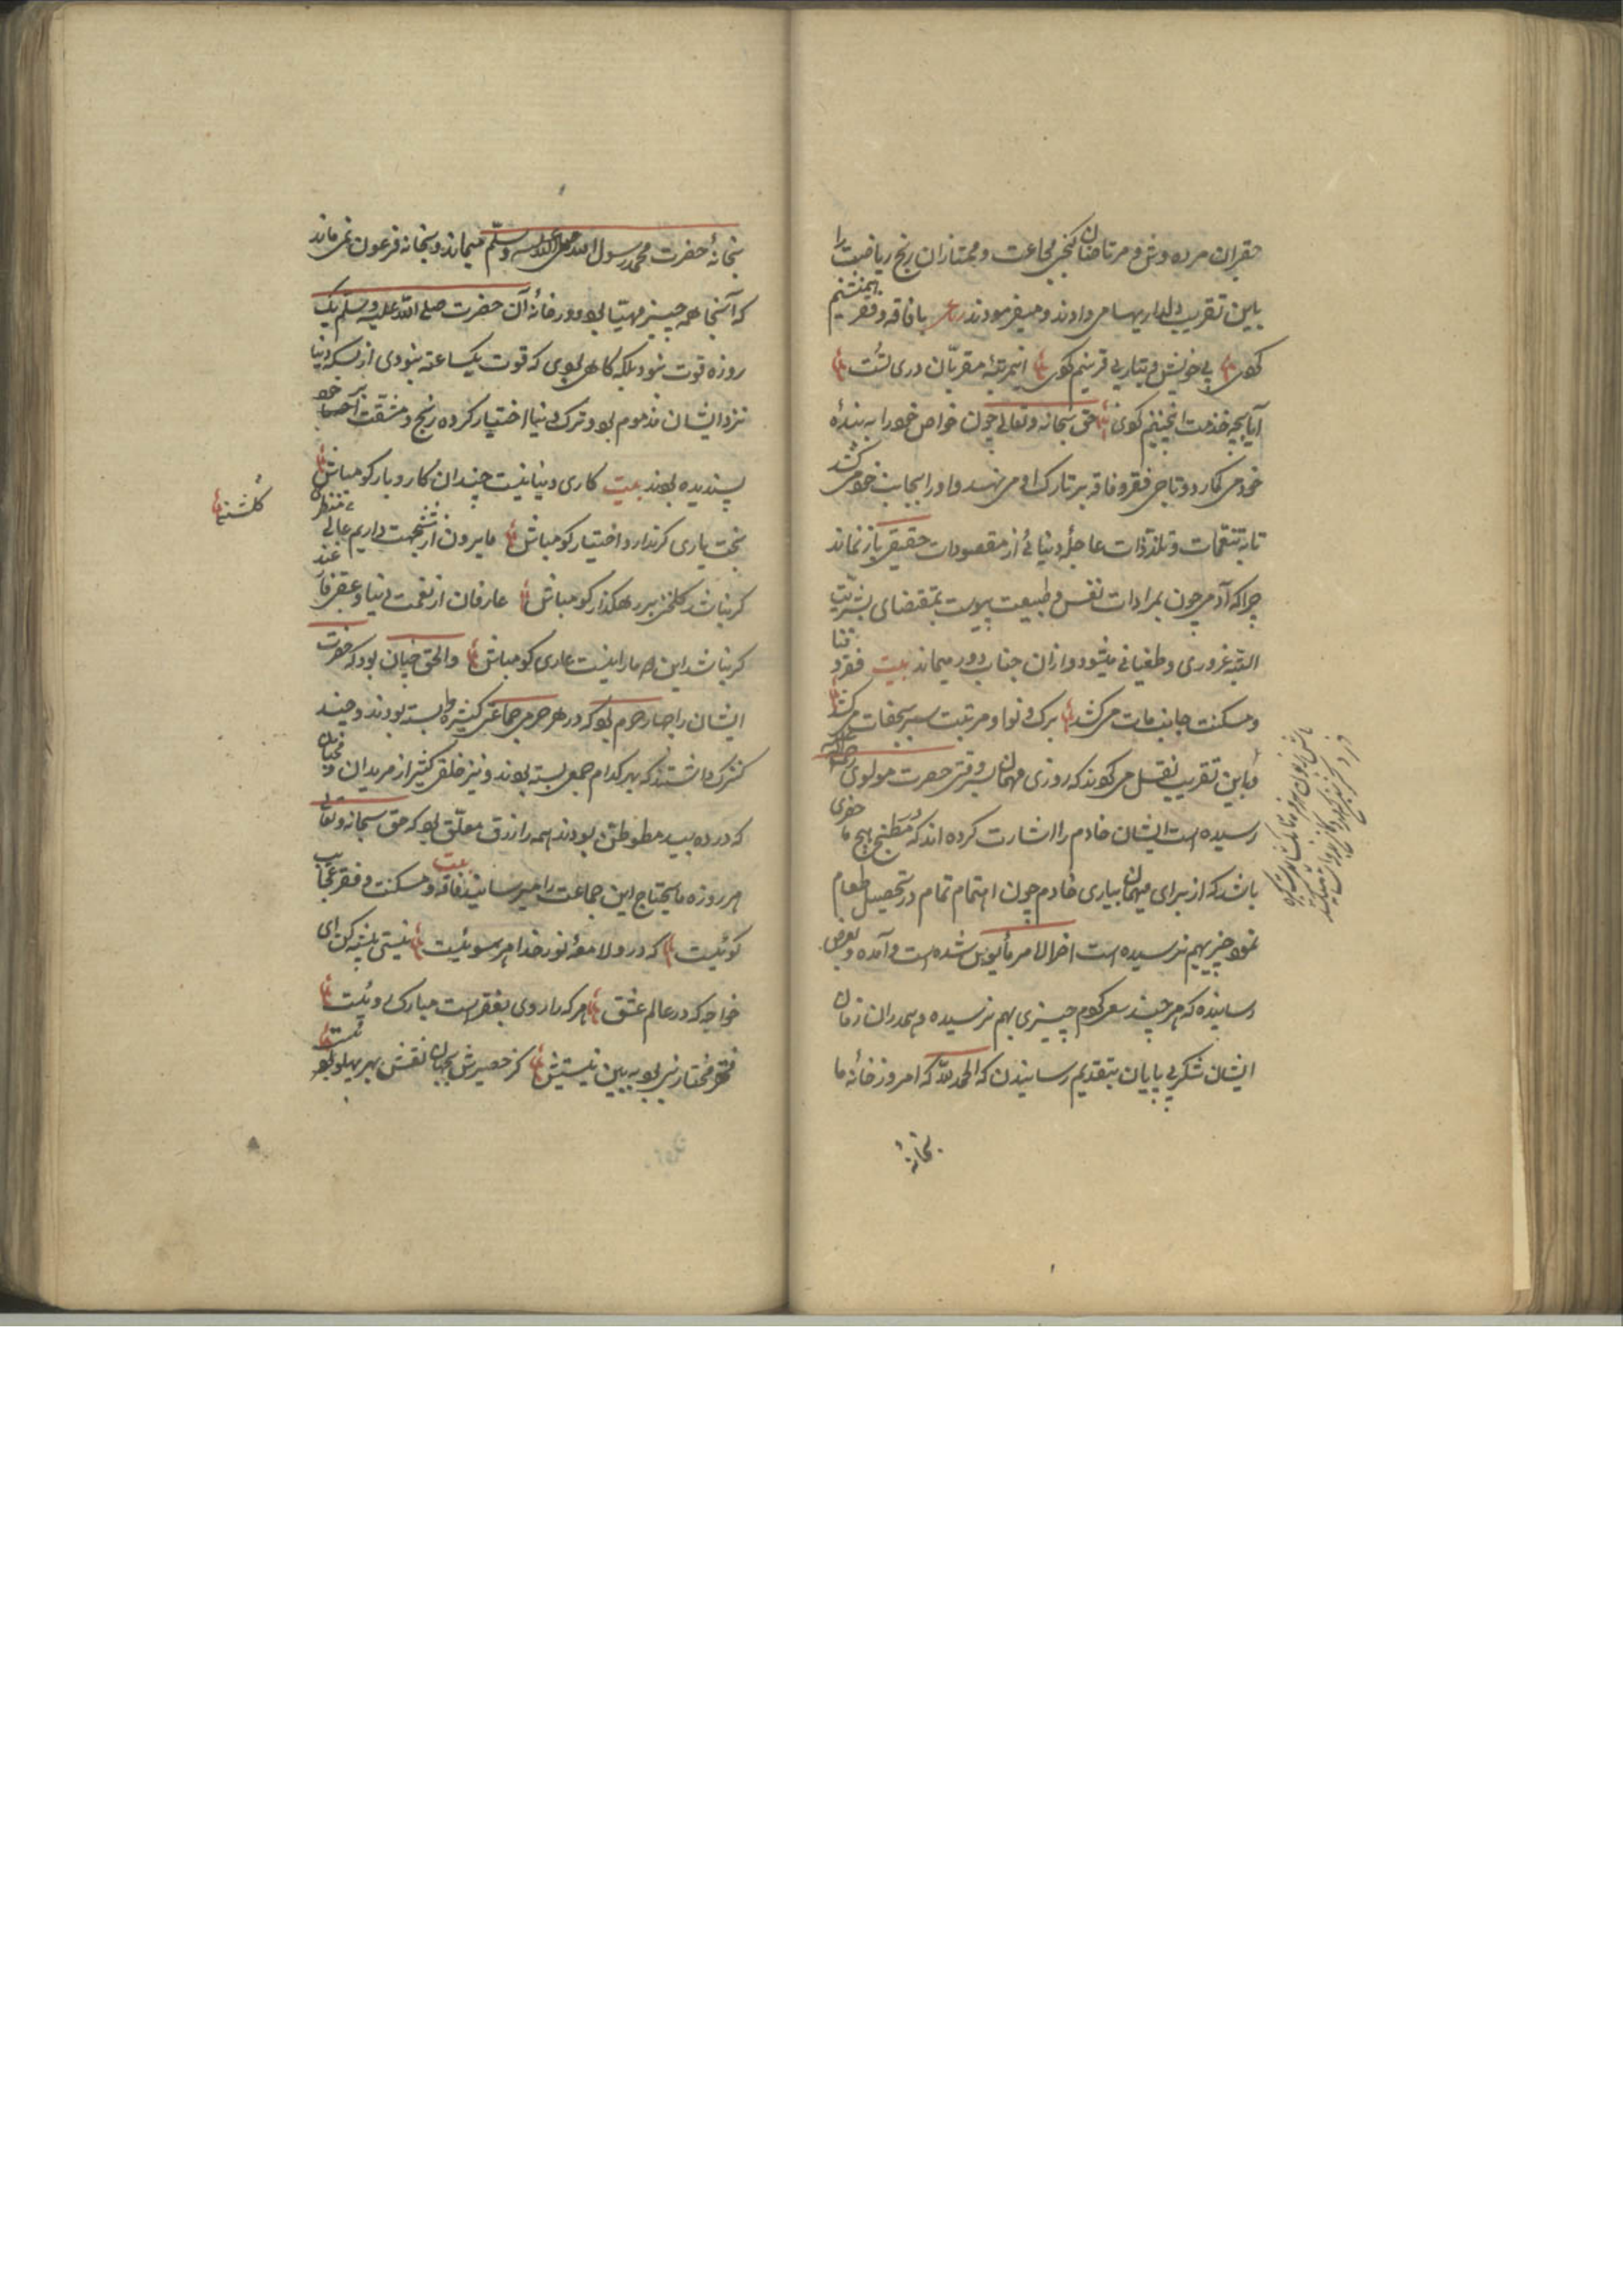 فقیران مرده وش و مرتاضان کنج مجاعت و ممتازان رنج ریاضت را
باین تقریب دلداریها می دادند و میفرمودند رباعی با فاقه و فقر همنشینم
کردی بی خویش و تبار بی قرینم کردی این مرتبهٔ مقربان در تست
آیا بچه خدمت اینچنینم کردی حق سبحانه وتعالی چون خواص خود را به بندهٔ
خود می کمارد و تاج فقر و فاقه بر تارک او می نهد و او را بجانب خود می کشد
تا به تنعمات و تلذذات عاجلهٔ دنیائی از مقصودات حقیقی باز نماند
چرا که آدمی چون بمرادات نفس و طبیعت پیوست بمقتضای بشریت
البته غروری و طغیانی میشود و از آن جناب دور میماند بیت فقر و فنا
و مسکنت جانب مات می کشد برک و نوا و مرتبت سیر بجفات می کشد
و باین تقریب نقل می کویند که روزی مهمانان بسر وقت حضرت مولوی
رسیده است ایشان خادم را اشارت کرده اند که در مطبخ هیچ ما حضری
باشد که از برای میهمانان بیاری خادم چون اهتمام تمام در تحصیل طعام
نمود چیز بهم نرسیده است اخر الامر مأیوس شده است و آمده و بعرض
رسانیده که هر چند سعی کردم چیزی بهم نرسیده و همدران زمان
ایشان شکر بی پایان بتقدیم رسانیدن که الحمد لله که امروز خانهٔ ما
بخانهٔ
بخانهٔ حضرت محمد رسول الله صلی الله علیه وسلم میماند و بخانه فرعون نمی ماند
که آنجا همه چیز مهیا بود و در خانهٔ آن حضرت صلی الله علیه وسلم یک
روزه قوت نبود بلکه کاهی بودی که قوت یکساعته نبودی از بسکه دنیا
نزد ایشان مذموم بود و ترک دنیا اختیار کرده رنج و مشقت بر خود
پسندیده بودند بیت کاری دنیا نیست چندان کار و بار کو مباش
بخت یاری کر ندارد اختیار کو مباش ما برون از شش جهت داریم عالی منظر
کلشنی
کر نباشد کلخن بر رهکذار کو مباش عارفان از نعمت دنیا و عقبی فارغند
کر نباشد این ما را نیست عاری کو مباش والحق چنان بود که حضرت
ایشان را چهار حرم بود که در هر حرمی جماعتی کثیره وابسته بودند و چند
کنیزک داشتند که بهر کدام جمعی بسته بودند و نیز خلق کثیر از مریدان و محبان
که در ده بید متوطن بودند همه را رزق معلق بود که حق سبحانه وتعالی
هر روزه مایحتاج این جماعت را میرسانید بیت فاقه و مسکنت و فقر عجایب
کوئیست که درو لامعهٔ نور خدا هر سوئیست نیستی پیشه کن ای
خواجه که در عالم عشق هر که را روی بفقر است مبارک روئیست
فقر مختار نبی بود به بین نیستیش کز حصیرش بجهان نقش بهر پهلوئیست